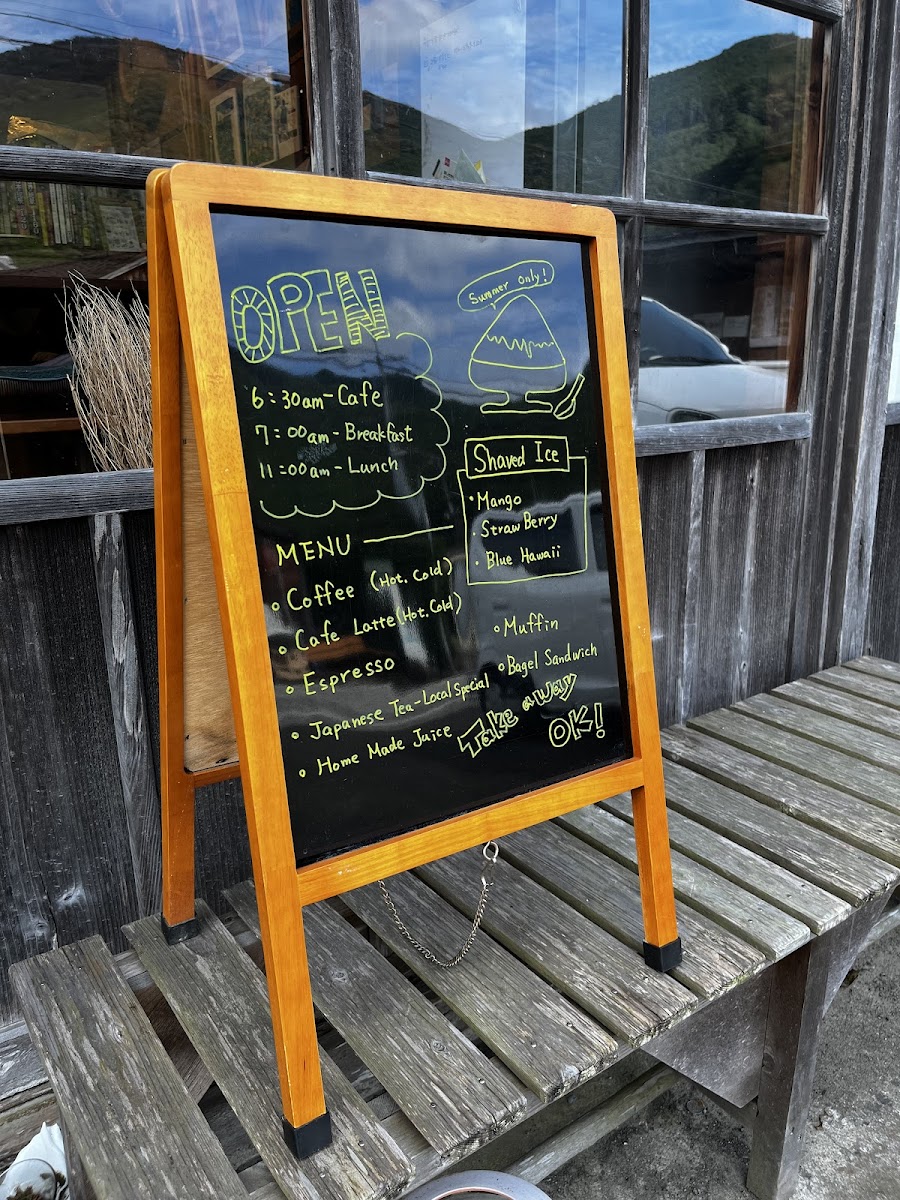 OPEN
6:30am-Cafe
7:00am-Breakfast
11:00am-Lunch
Summer only!
Shaved Ice
• Mango
• StrawBerry
• Blue Hawaii
MENU
○ Coffee (Hot. Cold)
○ Cafe Latte (Hot. Cold)
○ Espresso
○ Japanese Tea-Local Special
○ Home Made Juice
○ Muffin
○ Bagel Sandwich
Take away
OK!